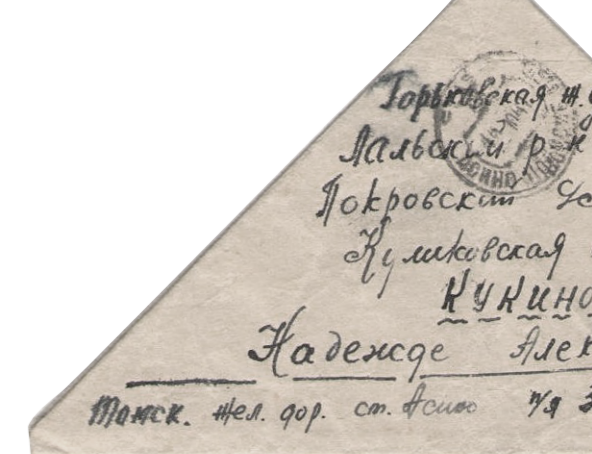 Горьковская ж.
Лальский р-н
Покровский
Куликовская
КУКИНО
Надежде Алек
Томск. жел. дор. ст. Асино п/я 3